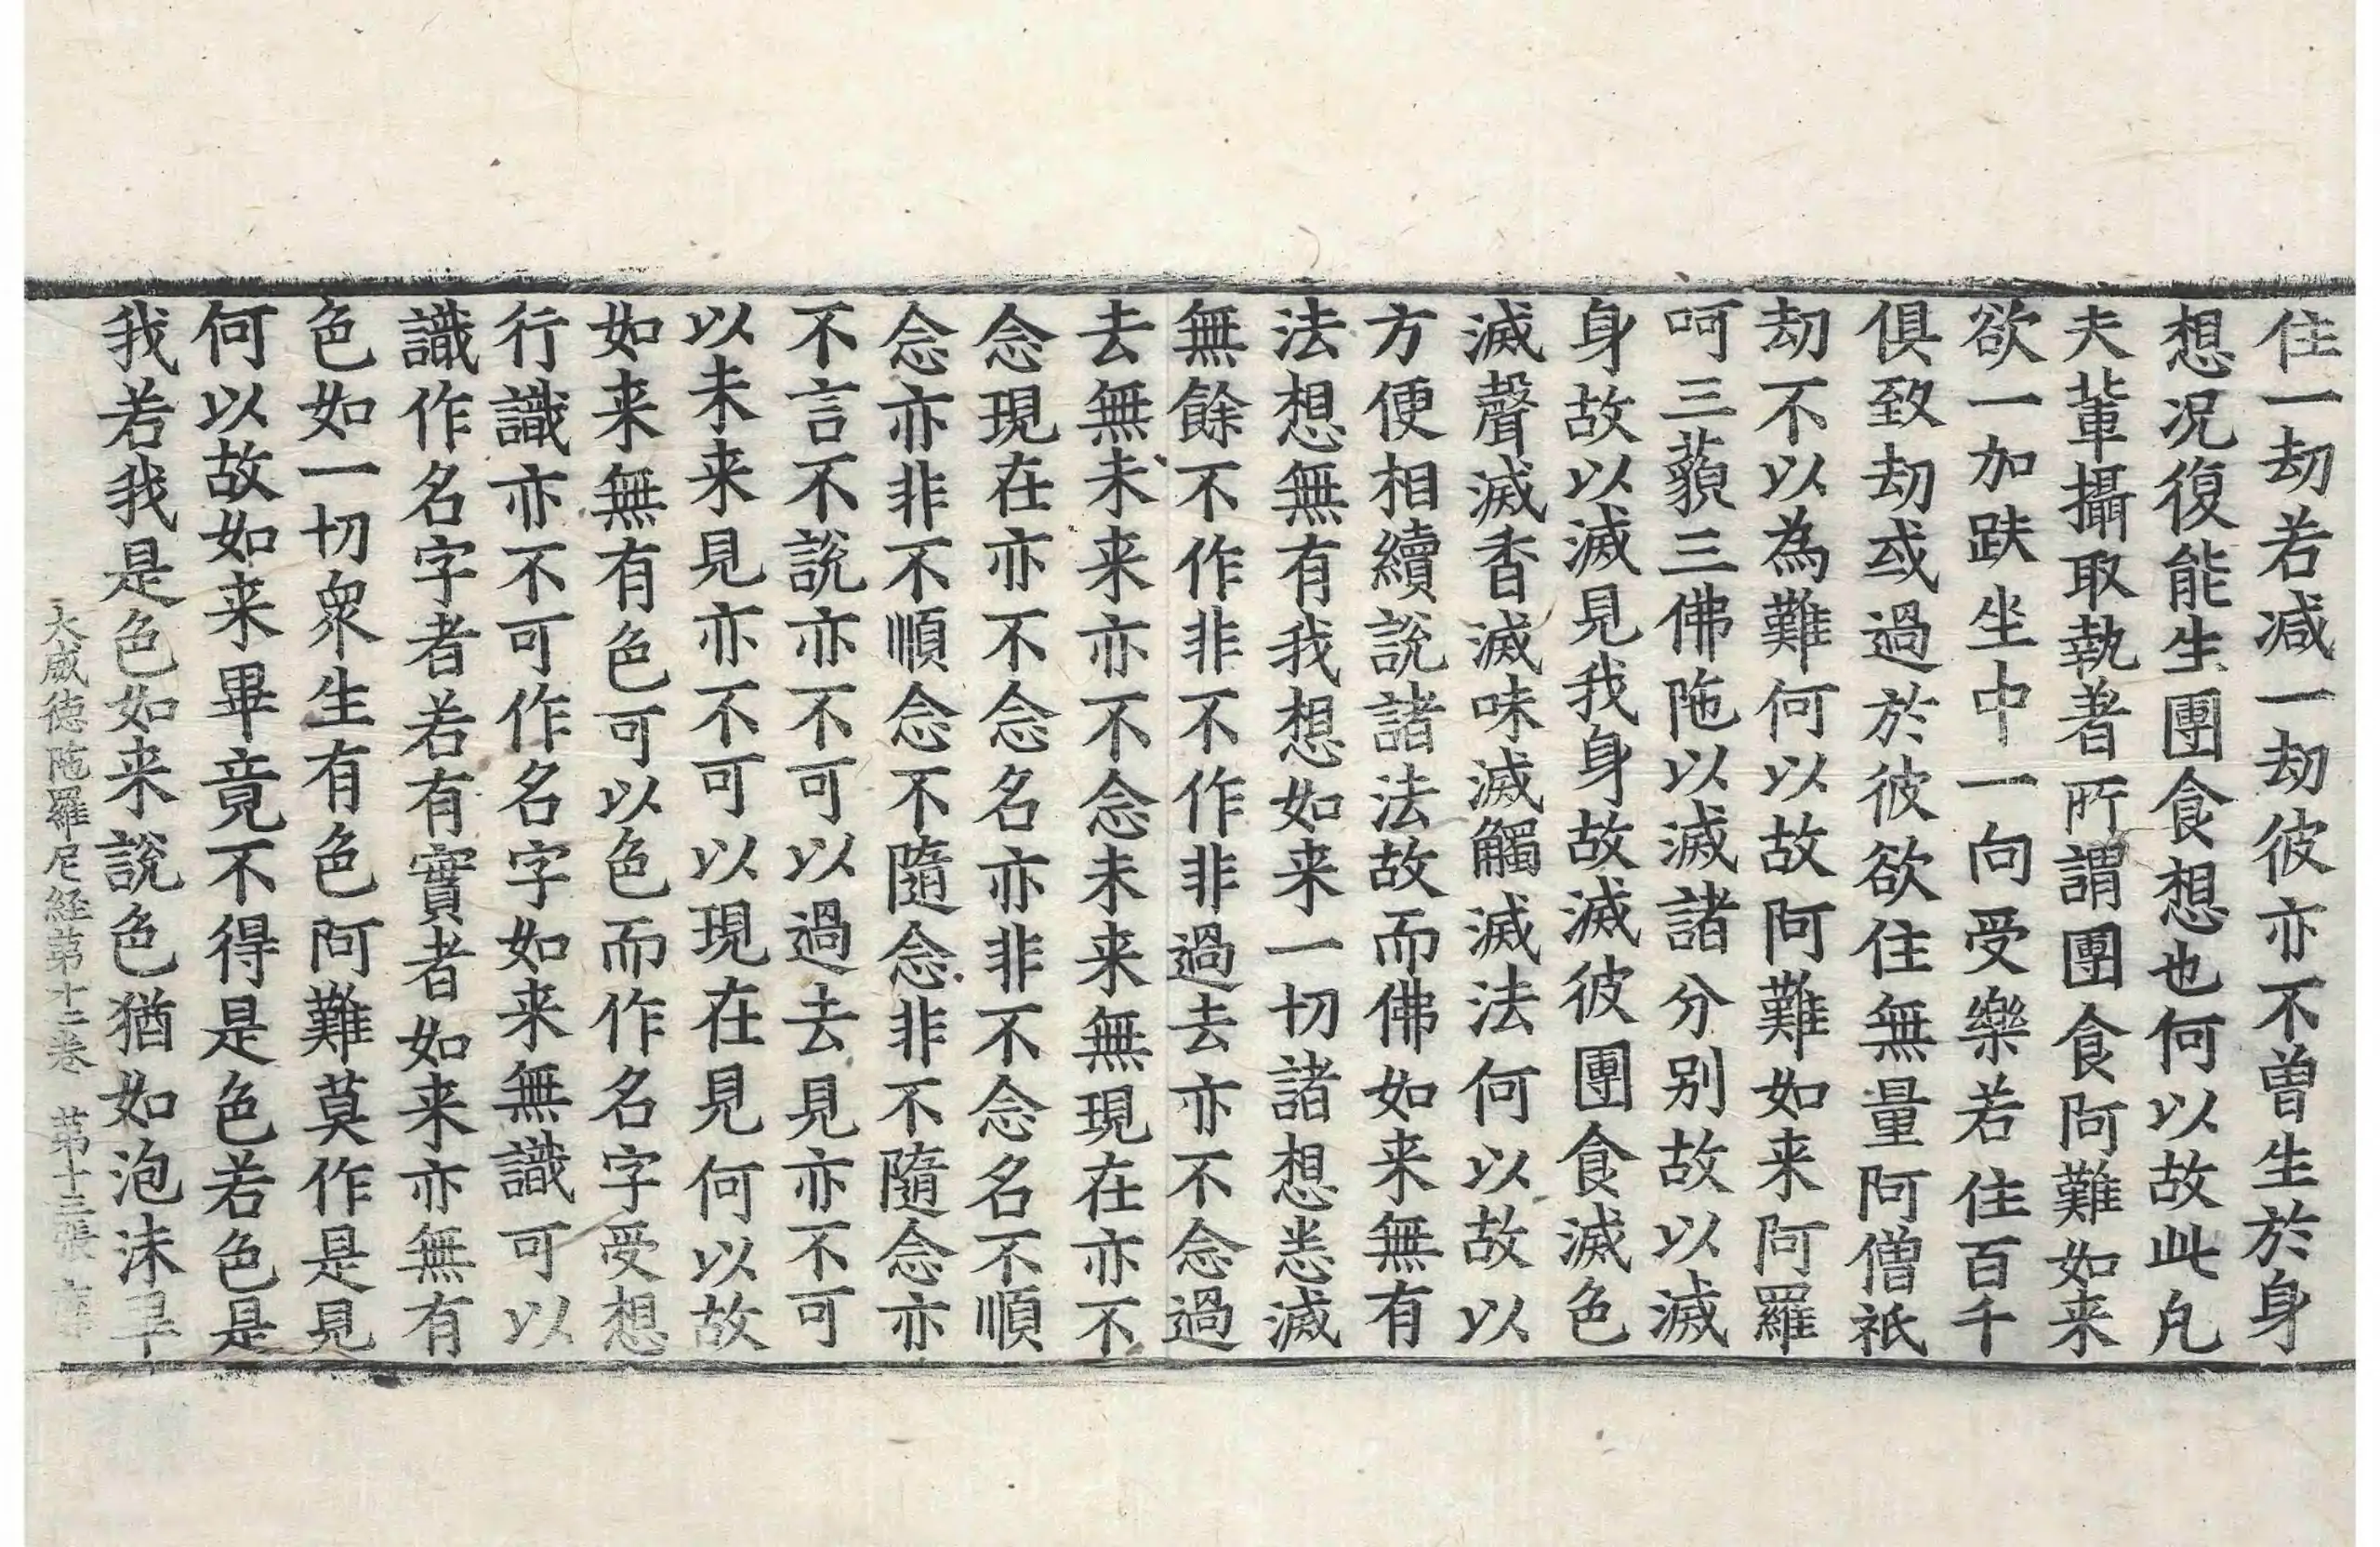 住一劫若减一劫彼亦不曽生於身
想况復能生團食想也何以故此凡
夫輩攝取執著所謂團食阿難如来
欲一加趺坐中一向受樂若住百千
俱致劫或過於彼欲住無量阿僧祇
劫不以為難何以故阿難如来阿羅
呵三藐三佛陁以滅諸分别故以滅
身故以滅見我身故滅彼團食滅色
滅聲滅香滅味滅觸滅法何以故以
方便相續說諸法故而佛如来無有
法想無有我想如来一切諸想悉滅
無餘不作非不作非過去亦不念過
去無未来亦不念未来無現在亦不
念現在亦不念名亦非不念名不順
念亦非不順念不隨念非不隨念亦
不言不說亦不可以過去見亦不可
以未来見亦不可以現在見何以故
如来無有色可以色而作名字受想
行識亦不可作名字如来無識可以
識作名字者若有實者如来亦無有
色如一切衆生有色阿難莫作是見
何以故如来畢竟不得是色若色是
我若我是色如来說色猶如泡沫早
大威德陁羅尼経第十二卷 第十三張